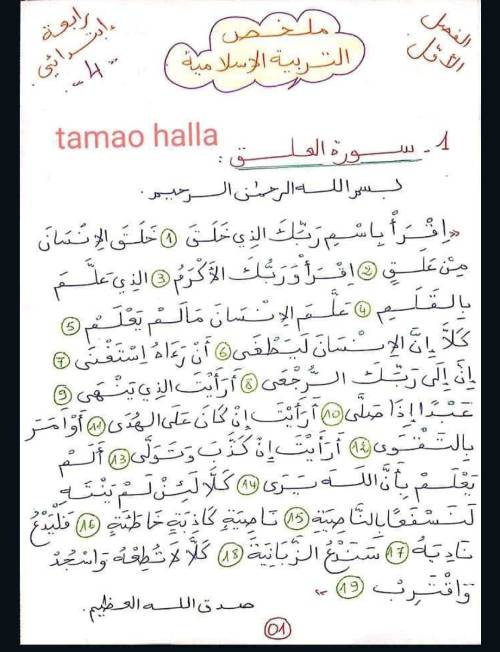 رابعة
إبتدائي
"4"
ملخص
التربية الإسلامية
الفصل
الأول
tamao halla
1 - سورة العلق :
بسم الله الرحمٰن الرحيم.
«اِقْرَأْ بِاسْمِ رَبِّكَ الذِي خَلَقَ (1) خَلَقَ الاِنْسَانَ
مِنْ عَلَقٍ (2) اِقْرَأْ وَرَبُّكَ الأَكْرَمُ (3) الذِي عَلَّمَ
بِالقَلَمِ (4) عَلَّمَ الاِنْسَانَ مَا لَمْ يَعْلَمْ (5)
كَلَّا إِنَّ الاِنْسَانَ لَيَطْغَى (6) أَنْ رَءَاهُ اِسْتَغْنَى (7)
إِنَّ إِلَى رَبِّكَ الرُّجْعَى (8) أَرَأَيْتَ الذِي يَنْهَى (9)
عَبْدًا إِذَا صَلَّى (10) أَرَأَيْتَ إِنْ كَانَ عَلَى الهُدَى (11) أَوْ اَمَرَ
بِالتَّقْوَى (12) أَرَأَيْتَ إِنْ كَذَّبَ وَتَوَلَّى (13) أَلَمْ
يَعْلَمْ بِأَنَّ اللَّهَ يَرَى (14) كَلَّا لَئِنْ لَمْ يَنْتَهِ
لَنَسْفَعًا بِالنَّاصِيَةِ (15) نَاصِيَةٍ كَاذِبَةٍ خَاطِئَةٍ (16) فَلْيَدْعُ
نَادِيَهُ (17) سَنَدْعُ الزَّبَانِيَةَ (18) كَلَّا لَا تُطِعْهُ وَاسْجُدْ
وَاقْتَرِبْ (19) »
صدق الله العظيم.
01